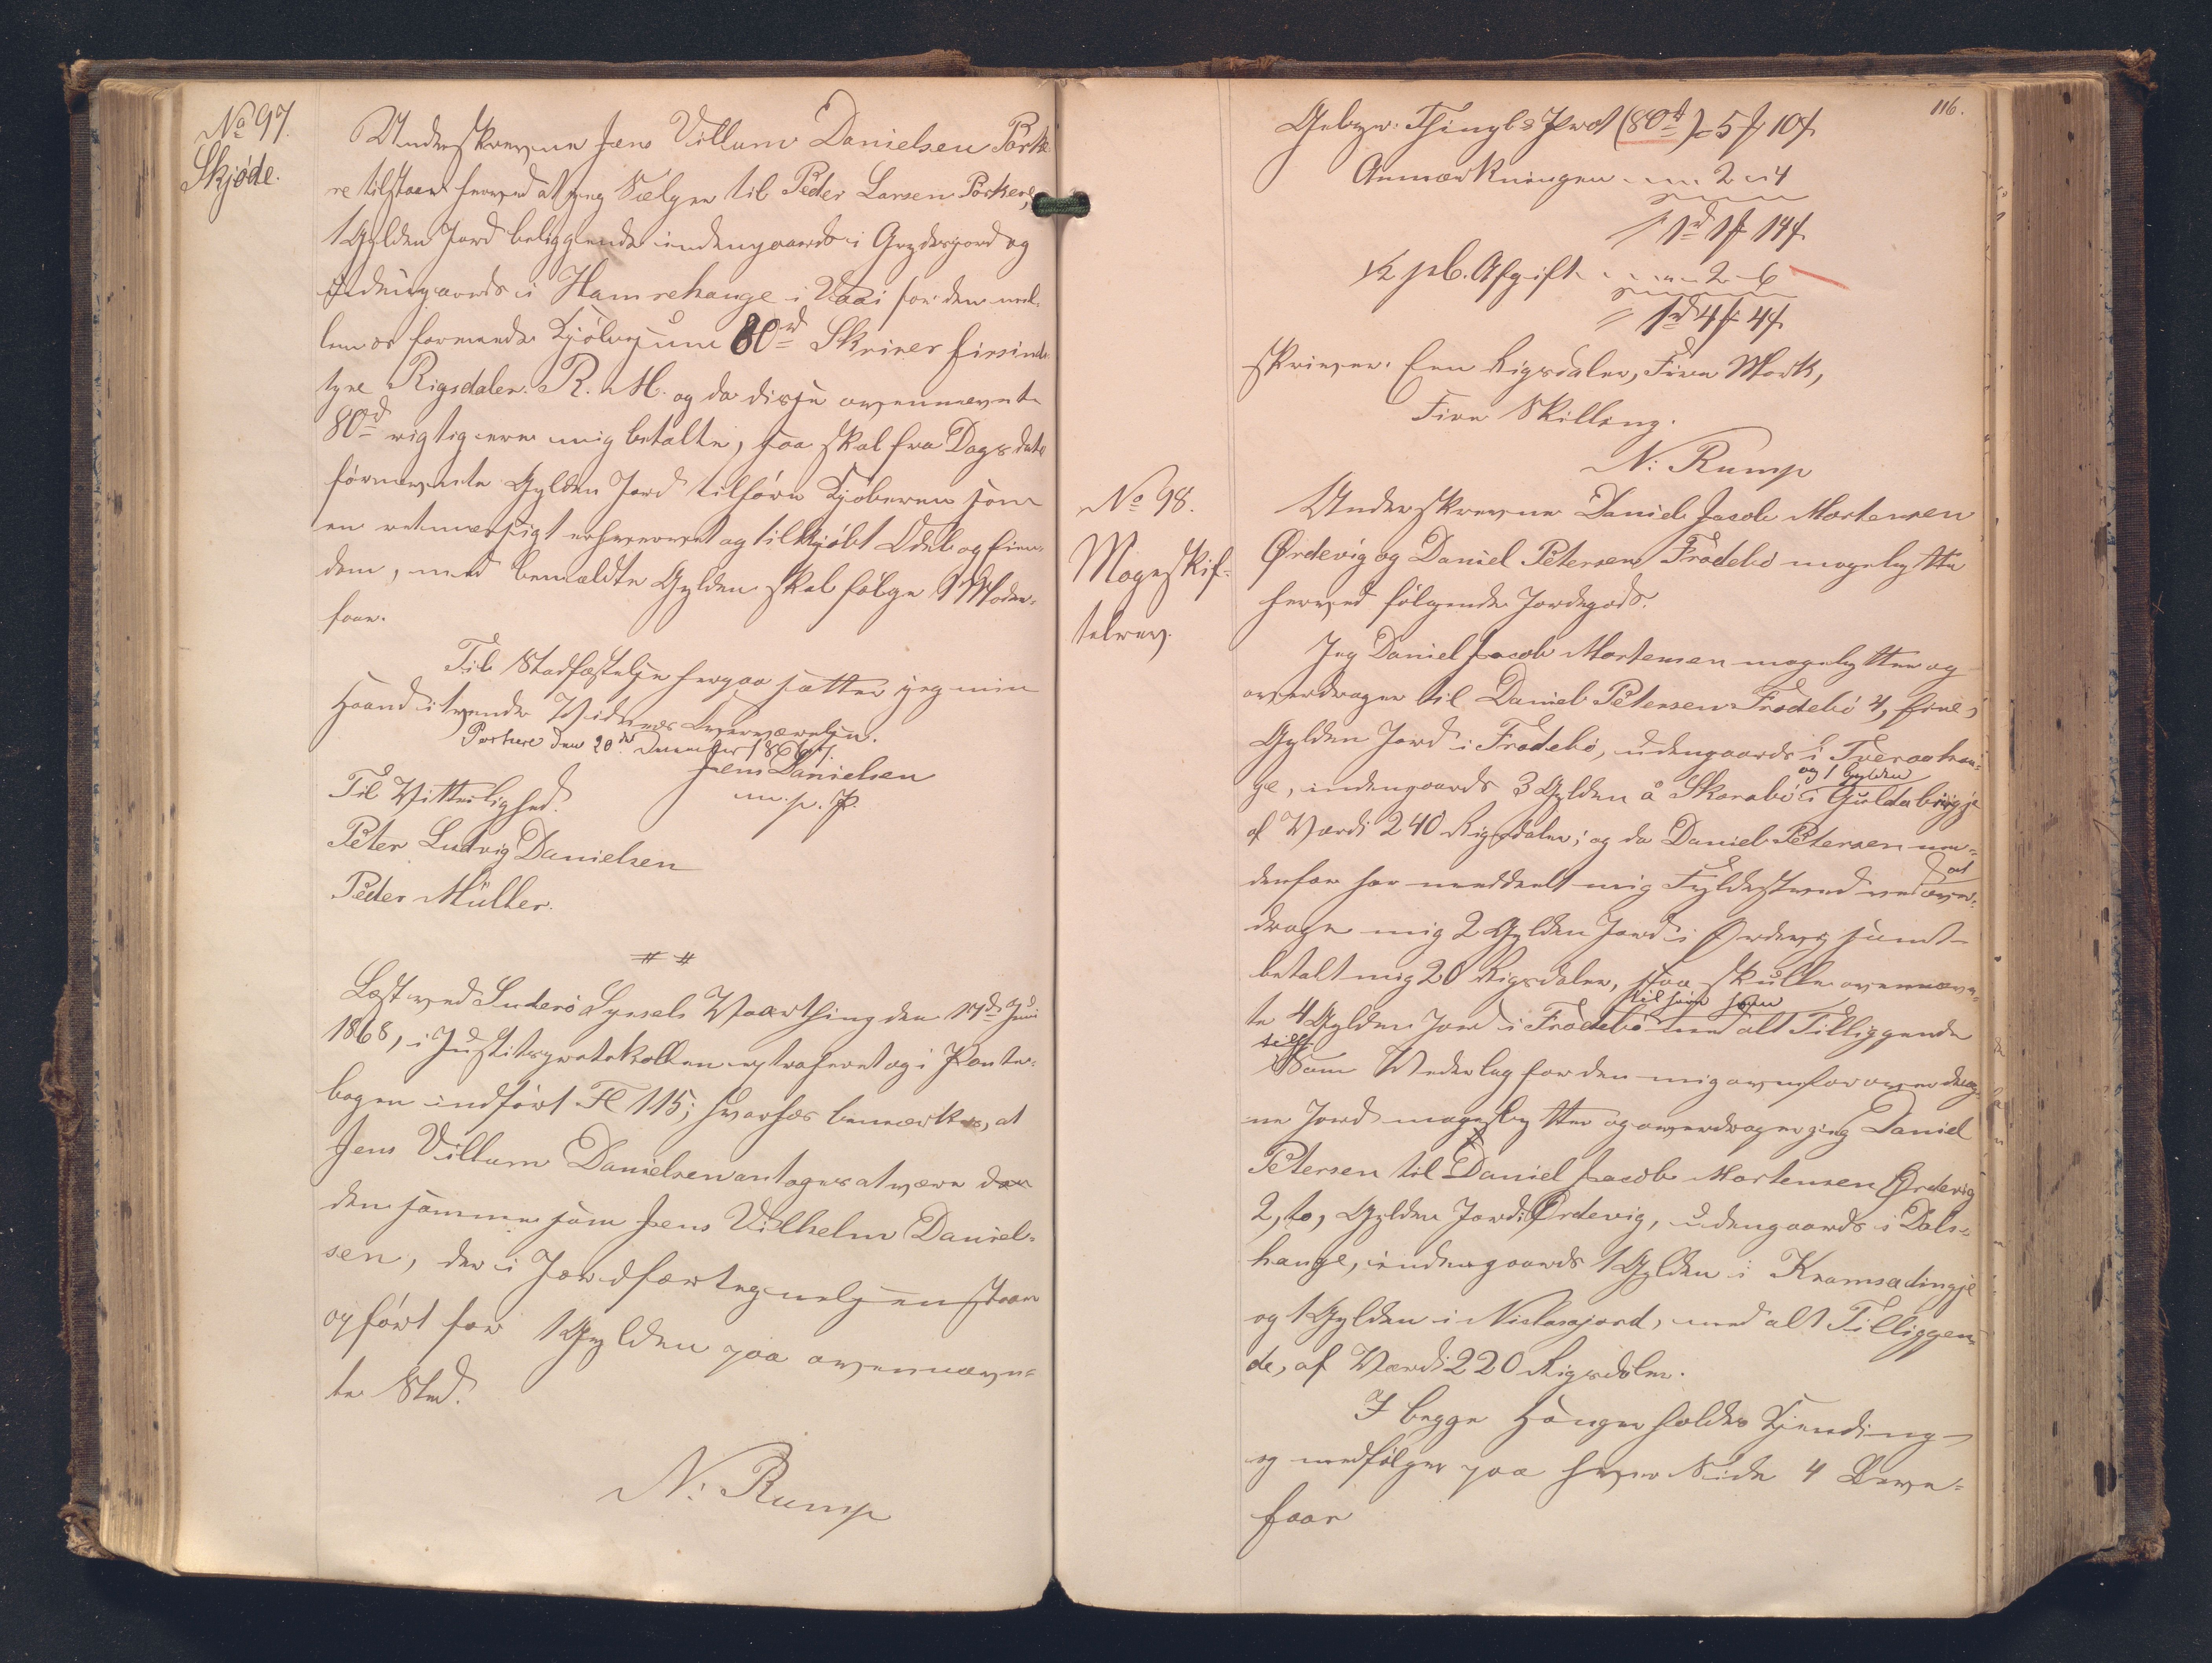 No 97.
Skjøde.
Underskrevne Jens Villum Danielsen Porke-
re tilstaaer herved at jeg Sælger til Peder Larsen Porkere,
1 Gylden Jord beliggende indengaards i Grydesgord og
udengaards i Hamrehauge i Vaai for den mel-
lem os formente Kjøbesum 80rd Skriver firsinds-
tyve Rigsdaler R. M. og da disse ovennævnte
80rd rigtig ere mig betalte, saa skal fra Dags dato
førnævnte Gylden Jord tilhøre Kjøberen som
en retmæssigt erhvervet og tilkjøbt Odel og Eien-
dom, med bemældte Gylden skal følge 1 Moder-
faar.
Til Stadfæstelse herpaa sætter jeg min
Haand i tvende Vidners Overværelse.
Porkere den 20de December 1867.
Jens Danielsen
m. p. P.
Til Vitterlighed.
Peter Ludvig Danielsen
Peder Müller.
Læst ved Suderø Syssels Vaarthing den 17de Juni
1868, i Justitsprotokollen extraheret og i Pante-
bogen indført Fl 115; hvorhos bemærkes, at
Jens Villum Danielsen antages at være
den samme som Jens Vilhelm Daniel-
sen, der i Jordfortegnelsen staaer
opført for 1 Gylden paa ovennævn-
te Sted.
N: Rump
116.
Gebyr: Thingls Prot (80rd) = 5 10
Anmærkningen 2 4
1rd 1 14
1/2 pC. Afgift 2 6
1rd 4 4
skriver: Een Rigsdaler, Fire Mark,
Fire Skilling.
N: Rump
No 98.
Mageskif-
tebrev.
Underskrevne Daniel Jacob Mortensen
Ørdevig og Daniel Petersen Frodebø magebytte
herved følgende Jordegods.
Jeg Daniel Jacob Mortensen magebytter og
overdrager til Daniel Petersen Frodebø 4, fire,
Gylden Jord i Frodebø, udengaards i Tveraahau-
ge, indengaards 3 Gylden å Skorabø og 1 Gylden i Guldabrigje
af Værdi 240 Rigsdaler; og da Daniel Petersen ne-
denfor har meddeelt mig Fyldestgjort ved at over-
drage mig 2 Gylden Jord i Ørdevig samt
betalt mig 20 Rigsdaler, saa skulle ovennævn-
te 4 Gylden Jord i Frodebø tilhøre ham med alt Tilliggende
Som Vederlag for den mig ovenfor overdrag-
ne Jord magebytter og overdrager jeg Daniel
Petersen til Daniel Jacob Mortensen Ørdevig
2, to, Gylden Jord i Ørdevig, udengaards i Dals-
hauge, indengaards 1 Gylden i Kramsadingje
og 1 Gylden i Nislasajord, med alt Tilliggen-
de, af Værdi 220 Rigsdaler.
I begge Hauger holdes Kjending
og medfølger paa hver Side 4
faar